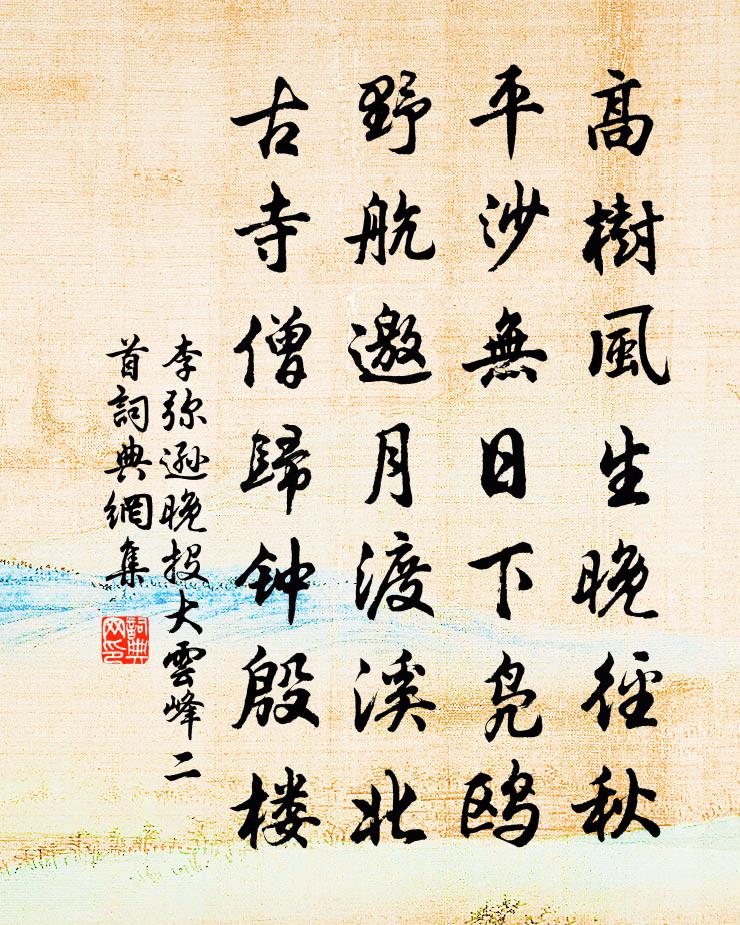 高樹風生晚徑秋
平沙無日下凫鸥
野航邀月渡溪北
古寺僧歸钟殷楼
李弥遜晚投大雲峰二
首詞典網集
詞典网印